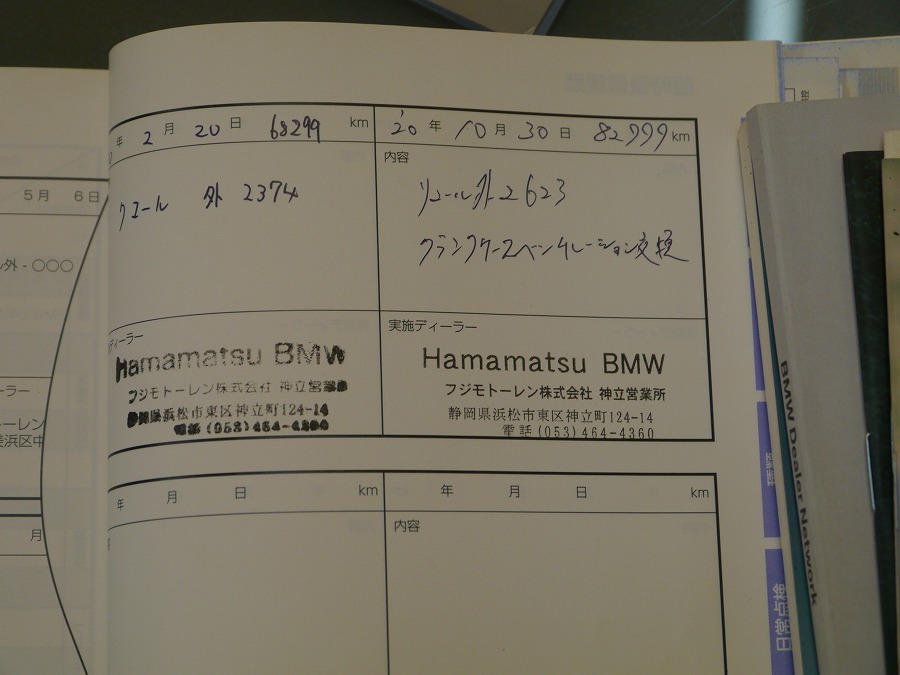 年 2 月 20 日 68299 km
リコール 外 2374
ディーラー
Hamamatsu BMW
フジモトーレン株式会社 神立営業所
静岡県浜松市東区神立町124-14
電話 (053) 464-4360
'20 年 10 月 30 日 82999 km
内容
リコール外 2623
クランクケースベンチレーション交換
実施ディーラー
Hamamatsu BMW
フジモトーレン株式会社 神立営業所
静岡県浜松市東区神立町124-14
電話 (053) 464-4360
年 月 日 km
年 月 日 km
内容
5月 6日
外-〇〇〇
ラー
月
BMW Dealer Network
日常点検